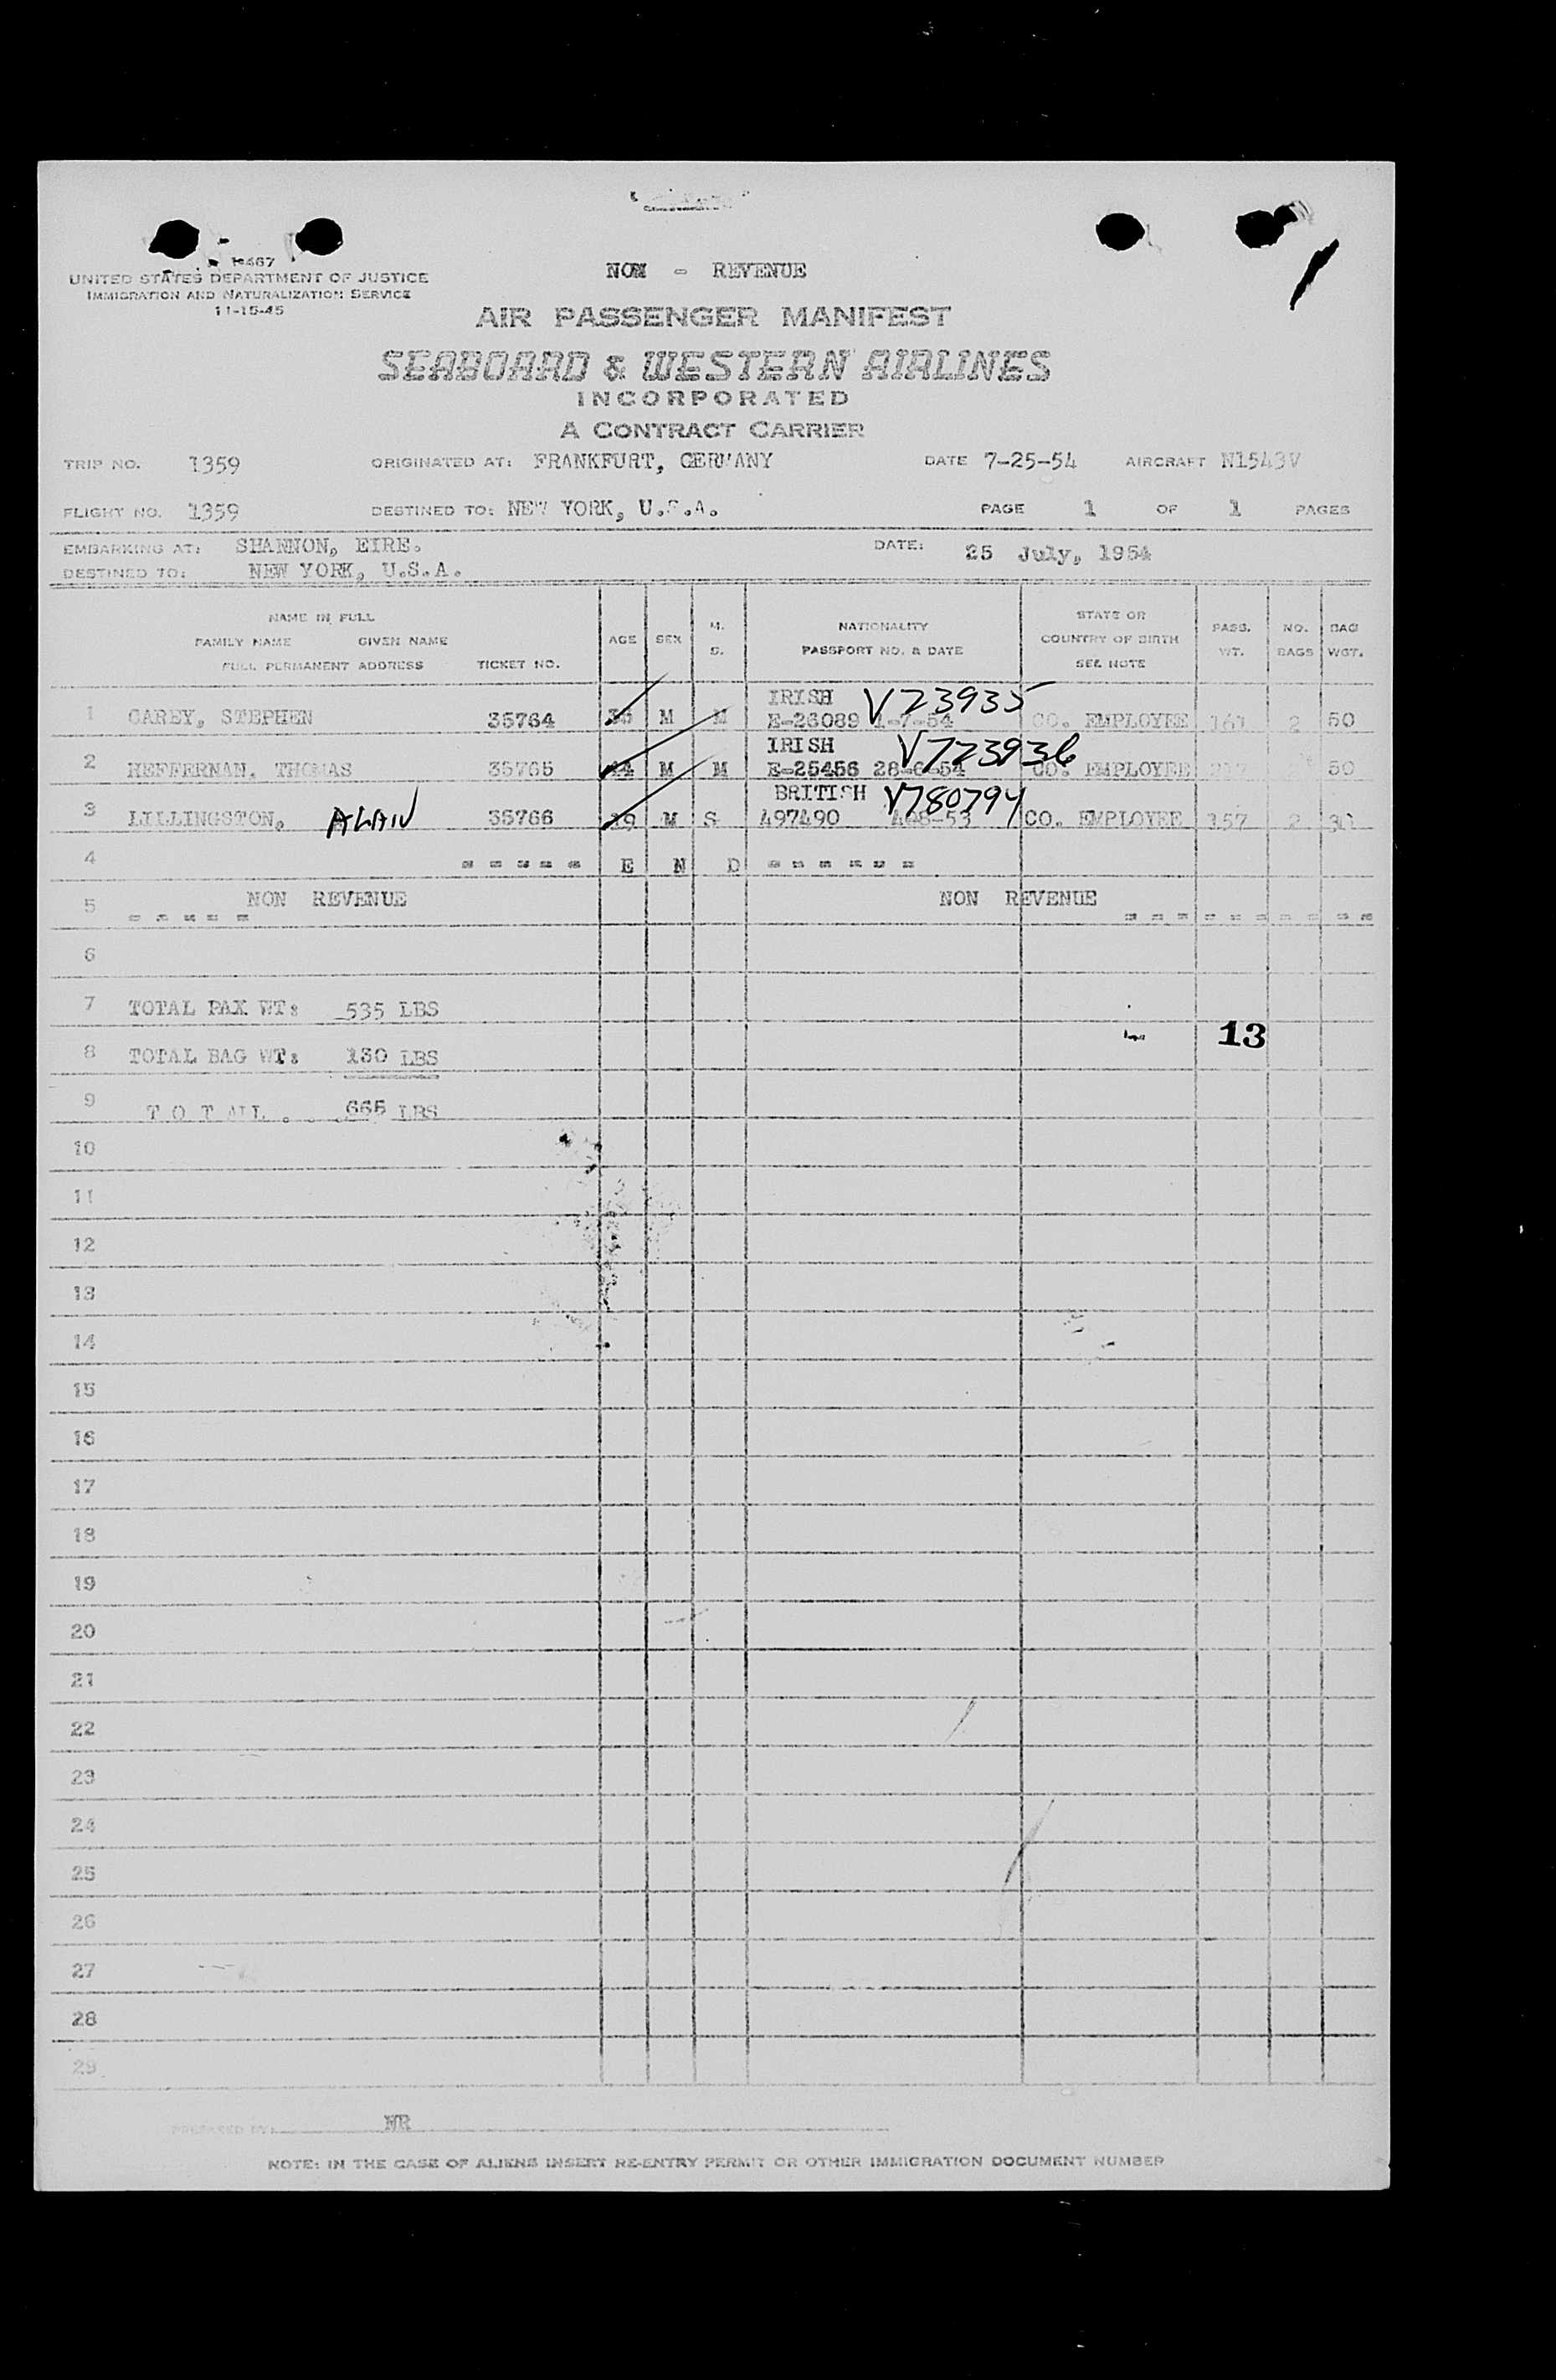 UNITED STATES DEPARTMENT OF JUSTICE
IMMIGRATION AND NATURALIZATION SERVICE
11-15-45
NON - REVENUE
AIR PASSENGER MANIFEST
SEABOARD & WESTERN AIRLINES
INCORPORATED
A CONTRACT CARRIER
TRIP NO. 1359 ORIGINATED AT: FRANKFURT, GERMANY DATE 7-25-54 AIRCRAFT N1543V
FLIGHT NO. 1359 DESTINED TO: NEW YORK, U.S.A. PAGE 1 OF 1 PAGES
EMBARKING AT: SHANNON, EIRE. DATE: 25 July, 1954
DESTINED TO: NEW YORK, U.S.A.
NAME IN FULL
FAMILY NAME GIVEN NAME
FULL PERMANENT ADDRESS TICKET NO. AGE SEX M. S. NATIONALITY PASSPORT NO. & DATE STATE OR COUNTRY OF BIRTH SEE NOTE PASS. WT. NO. BAGS BAG WGT.
IRISH V723935
1 CAREY, STEPHEN 35764 M M E-26089 1-7-54 CO. EMPLOYEE 161 2 50
IRISH V723936
2 HEFFERNAN, THOMAS 35765 44 M M E-25456 28-6-54 CO. EMPLOYEE 50
BRITISH V780794
3 LILLINGSTON, ALAIN 35766 19 M S 497490 CO. EMPLOYEE 157 2 30
4 - - - - - E N D - - - - - -
5 NON REVENUE NON REVENUE
- - - - - - - - - - - - - - -
6
7 TOTAL PAX WT: 535 LBS
13
8 TOTAL BAG WT: 130 LBS
9 T O T A L . . 665 LBS
10
11
12
13
14
15
16
17
18
19
20
21
22
23
24
25
26
27
28
29
PREPARED BY: NR
NOTE: IN THE CASE OF ALIENS INSERT RE-ENTRY PERMIT OR OTHER IMMIGRATION DOCUMENT NUMBER